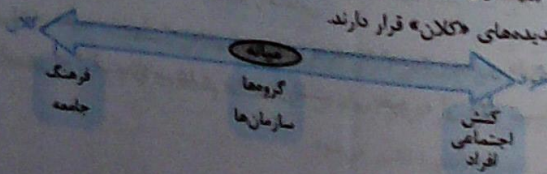 دیده‌های «کلان» قرار دارند.
کلان
میانه
خرد
فرهنگ
جامعه
گروه‌ها
سازمان‌ها
کنش
اجتماعی
افراد